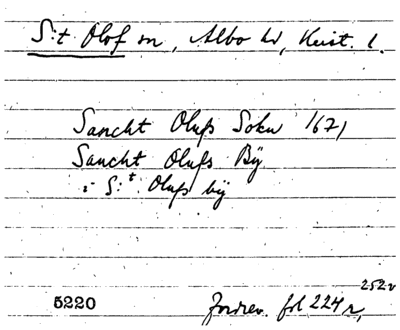 S:t Olof sn, Albo hd, Krist. l.
Sancht Olufs Sokn 1671
Sancht Olufs Bÿ
i S:t Olufs bÿ
252v
5220 Jordrev. fol 224 r,